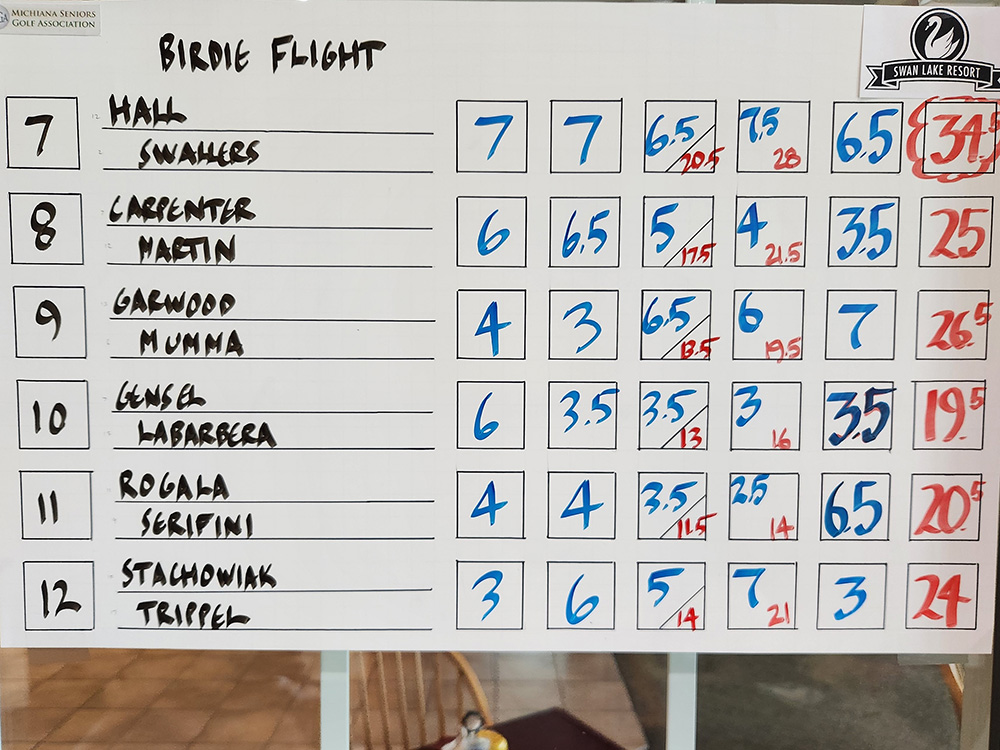 MICHIANA SENIORS
GOLF ASSOCIATION
SWAN LAKE RESORT
BIRDIE FLIGHT
7 HALL 7 7 6.5 20.5 7.5 28 6.5 34.5
SWAHERS
8 CARPENTER 6 6.5 5 17.5 4 21.5 3.5 25
MARTIN
9 GARWOOD 4 3 6.5 13.5 6 19.5 7 26.5
MUMMA
10 GENSEL 6 3.5 3.5 13 3 16 3.5 19.5
LABARBERA
11 ROGALA 4 4 3.5 11.5 2.5 14 6.5 20.5
SERIFINI
12 STACHOWIAK 3 6 5 14 7 21 3 24
TRIPPEL